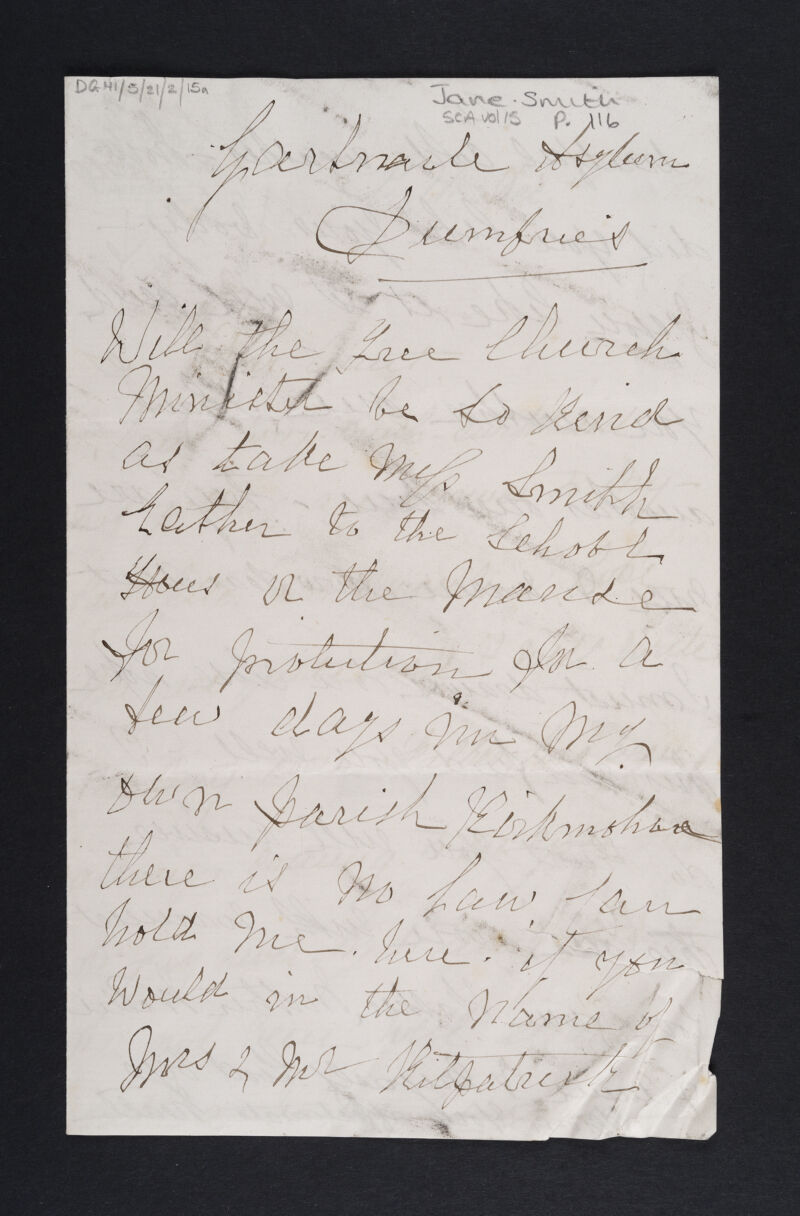 DGH1/5/21/2/15a
Jane Smith
SCA vol 15 P. 116
Gartnavle Asylum
Dumfries
Will the Free Church
Minister be so Keind
as take Miss Smith
Eather to the School
or the Manse
for In a
few days in My
own parish Kirkmohoe
there is no Law Can
hold Me. here. if you
Would in the Name of
Mrs & Mr Kilpatrick